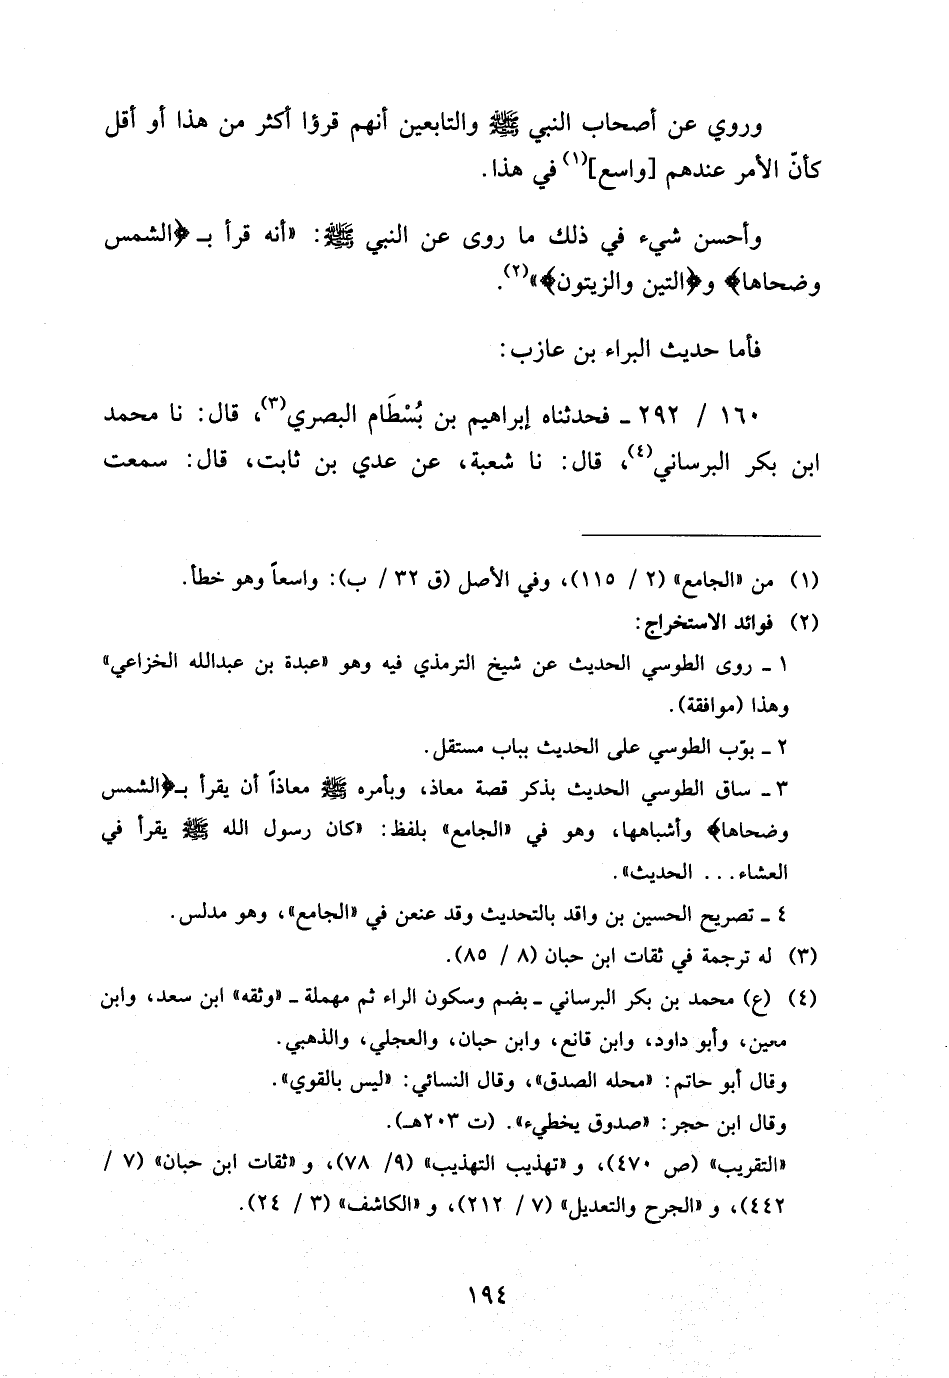 وروي عن أصحاب النبي ﷺ والتابعين أنهم قرؤا أكثر من هذا أو أقل
كأنّ الأمر عندهم [واسع](١) في هذا.
وأحسن شيء في ذلك ما روى عن النبي ﷺ: «أنه قرأ بـ ﴿الشمس
وضحاها﴾ و﴿التين والزيتون﴾»(٢).
فأما حديث البراء بن عازب:
١٦٠ / ٢٩٢ ـ فحدثناه إبراهيم بن بُسْطَام البصري(٣)، قال: نا محمد
ابن بكر البرساني(٤)، قال: نا شعبة، عن عدي بن ثابت، قال: سمعت
(١) من «الجامع» (٢ / ١١٥)، وفي الأصل (ق ٣٢ / ب): واسعاً وهو خطأ.
(٢) فوائد الاستخراج:
١ ـ روى الطوسي الحديث عن شيخ الترمذي فيه وهو «عبدة بن عبدالله الخزاعي»
وهذا (موافقة).
٢ ـ بوّب الطوسي على الحديث بباب مستقل.
٣ ـ ساق الطوسي الحديث بذكر قصة معاذ، وبأمره ﷺ معاذاً أن يقرأ بـ﴿الشمس
وضحاها﴾ وأشباهها، وهو في «الجامع» بلفظ: «كان رسول الله ﷺ يقرأ في
العشاء... الحديث».
٤ ـ تصريح الحسين بن واقد بالتحديث وقد عنعن في «الجامع»، وهو مدلس.
(٣) له ترجمة في ثقات ابن حبان (٨ / ٨٥).
(٤) (ع) محمد بن بكر البرساني ـ بضم وسكون الراء ثم مهملة ـ «وثقه» ابن سعد، وابن
معين، وأبو داود، وابن قانع، وابن حبان، والعجلي، والذهبي.
وقال أبو حاتم: «محله الصدق»، وقال النسائي: «ليس بالقوي».
وقال ابن حجر: «صدوق يخطيء». (ت ٢٠٣هـ).
«التقريب» (ص ٤٧٠)، و «تهذيب التهذيب» (٩/ ٧٨)، و «ثقات ابن حبان» (٧ /
٤٤٢)، و «الجرح والتعديل» (٧ / ٢١٢)، و «الكاشف» (٣ / ٢٤).
١٩٤